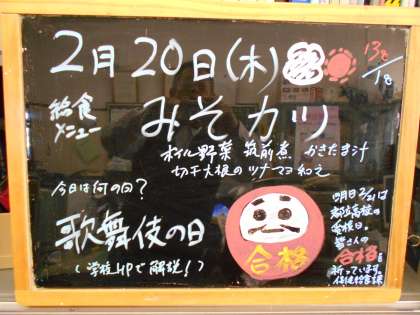 2月20日(木)
13℃/1℃
給食
メニュー
みそカツ
ボイル野菜 筑前煮 かきたま汁
切干大根のツナマヨ和え
今日は何の日?
歌舞伎の日
(学校HPで解説!)
合格
明日2/21は
都立高校の
受検日。
皆さんの
合格を
祈っています。
保健給食課